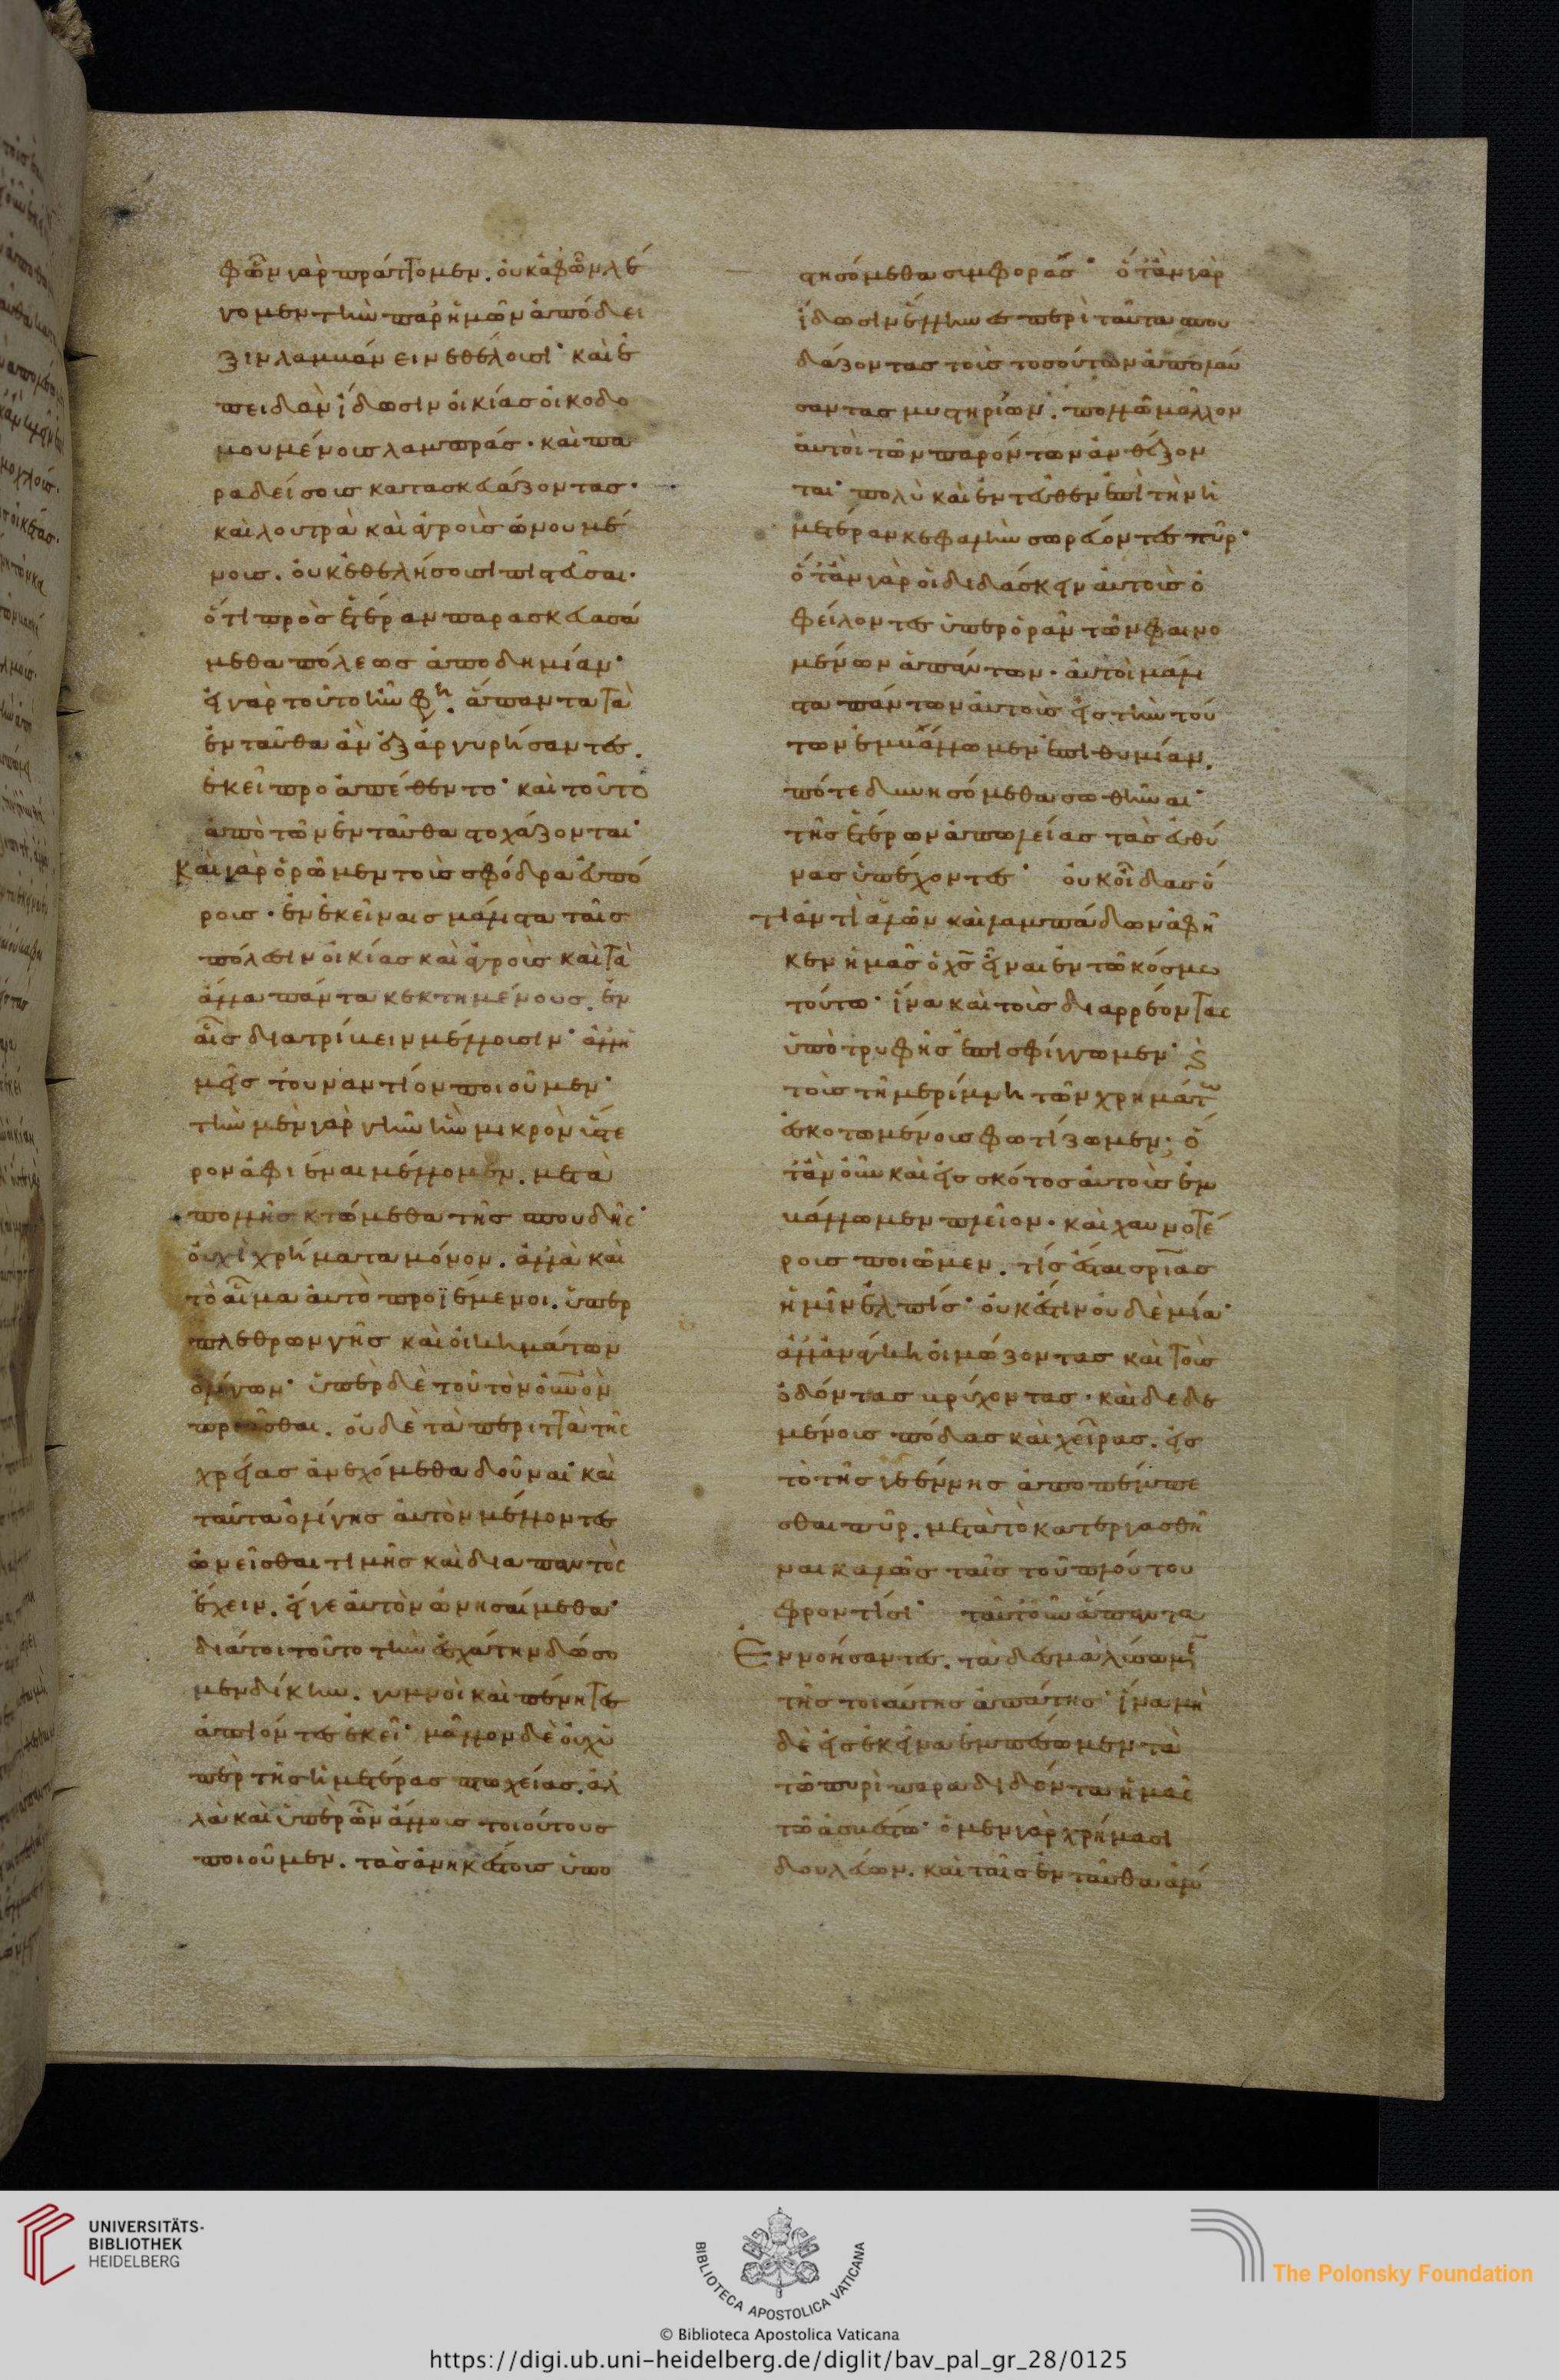 φῶν γὰρ πράττομεν. οὐκ ἀφῶν λέ
γομεν τὴν παρ ἡμῶν ἀπόδει
ξιν λαμβάνειν ἐθέλουσι· καὶ ἐ
πειδὰν ἴδωσιν οἰκίας οἰκοδο
μουμένους λαμπράς· καὶ πα
ραδείσους κατασκευάζοντας·
καὶ λουτρὰ καὶ ἀγροὺς ὠνουμέ
νους. οὐκ ἐθελήσουσι πιστεῦσαι·
ὅτι πρὸς ἑτέραν παρασκευασό
μεθα πόλεως ἀποδημίαν·
εἰ γὰρ τοῦτο ἦν φη. ἅπαντα τὰ
ἐνταῦθα ἂν ἐξαργυρήσαντες.
ἐκεῖ προαπέθεντο· καὶ τοῦτο
ἀπὸ τῶν ἐνταῦθα στοχάζονται·
Καὶ γὰρ ὁρῶμεν τοὺς σφόδρα εὐπό
ρους· ἐν ἐκείναις μάλιστα ταῖς
πόλεσιν οἰκίας καὶ ἀγροὺς καὶ τὰ
ἄλλα πάντα κεκτημένους. ἐν
αἷς διατρίβειν μέλλουσιν· ἀλλ ἡ
μεῖς τοὐναντίον ποιοῦμεν·
τὴν μὲν γὰρ γῆν ἣν μικρὸν ὕστε
ρον ἀφιέναι μέλλομεν. μετὰ
πολλῆς κτώμεθα τῆς σπουδῆς·
οὐχὶ χρήματα μόνον. ἀλλὰ καὶ
τὸ αἷμα αὐτὸ προϊέμενοι. ὑπὲρ
πλέθρων γῆς καὶ οἰκημάτων
ὀλίγων· ὑπὲρ δὲ τοῦ τὸν οὐνὸν
πριᾶσθαι. οὐδὲ τὰ περιττὰ τῆς
χρείας ἀνεχόμεθα δοῦναι· καὶ
ταῦτα ὀλίγης αὐτὸν μέλλοντες
ὠνεῖσθαι τιμῆς καὶ διαπαντὸς
ἔχειν. εἴγε αὐτὸν ὠνησαίμεθα·
διάτοι τοῦτο τὴν ἐσχάτην δώσο
μεν δίκην. γυμνοὶ καὶ πένητες
ἀπιόντες ἐκεῖ· μᾶλλον δὲ οὐχ ὑ
πὲρ τῆς ἡμετέρας πτωχείας. ἀλ
λὰ καὶ ὑπὲρ ὧν ἄλλους τοιούτους
ποιοῦμεν. τὰς ἀνηκέστους ὑπο
στησόμεθα συμφοράς· ὅταν γὰρ
ἴδωσιν ἕλληνες περὶ ταῦτα σπου
δάζοντας τοὺς τοσούτων ἀπολαύ
σαντας μυστηρίων. πολλῶ μᾶλλον
αὐτοὶ τῶν παρόντων ἀνθέξον
ται· πολὺ καὶ ἐντεῦθεν ἐπὶ τὴν ἡ
μετέραν κεφαλὴν σωρεύοντες πῦρ·
ὅταν γὰρ οἱ διδάσκειν αὐτοὺς ὀ
φείλοντες ὑπερορᾶν τῶν φαινο
μένων ἁπάντων· αὐτοὶ μάλι
στα πάντων αὐτοὺς εἰς τὴν τού
των ἐμβάλλωμεν ἐπιθυμίαν.
πότε δυνησόμεθα σωθῆναι·
τῆς ἑτέρων ἀπωλείας τὰς εὐθύ
νας ὑπέχοντες· οὐκ οἶδας ὅ
τι ἀντὶ ἁλῶν καὶ λαμπάδων ἀφῆ
κεν ἡμᾶς ὁ χς εἶναι ἐν τῶ κόσμω
τούτω· ἵνα καὶ τοὺς διαρρέοντας
ὑπὸ τρυφῆς ἐπισφίγγωμεν· ϗ
τοὺς τῆ μερίμνη τῶν χρημάτων
ἐσκοτωμένους φωτίζωμεν; ὅ
ταν οὖν καὶ εἰς σκότος αὐτοὺς ἐμ
βάλλωμεν πλεῖον· καὶ χαυνοτέ
ρους ποιῶμεν. τίς ἔσται σρίας
ἡμῖν ἐλπίς· οὐκ ἔστιν οὐδὲ μία·
ἀλλ ἀνάγκη οἰμώζοντας καὶ τοὺς
ὀδόντας βρύχοντας· καὶ δεδε
μένους πόδας καὶ χεῖρας. εἰς
τὸ τῆς γεέννης ἀποπέμπε
σθαι πῦρ. μετὰ τὸ κατεργασθῆ
ναι καλῶς ταῖς τοῦ πλούτου
φροντίσι· ταῦτ οὖν ἅπαντα
Ἐννοήσαντες. τὰ δεσμὰ λύσωμεν
τῆς τοιαύτης ἀπάτης· ἵνα μὴ
δὲ εἰς ἐκεῖνα ἐμπέσωμεν τὰ
τῶ πυρὶ παραδιδόντα ἡμᾶς
τῶ ἀσβέστω· ὁ μὲν γὰρ χρήμασι
δουλεύων. καὶ ταῖς ἐνταῦθα ἁλύ
UNIVERSITÄTS-
BIBLIOTHEK
HEIDELBERG
BIBLIOTECA APOSTOLICA VATICANA
The Polonsky Foundation
© Biblioteca Apostolica Vaticana
https://digi.ub.uni-heidelberg.de/diglit/bav_pal_gr_28/0125